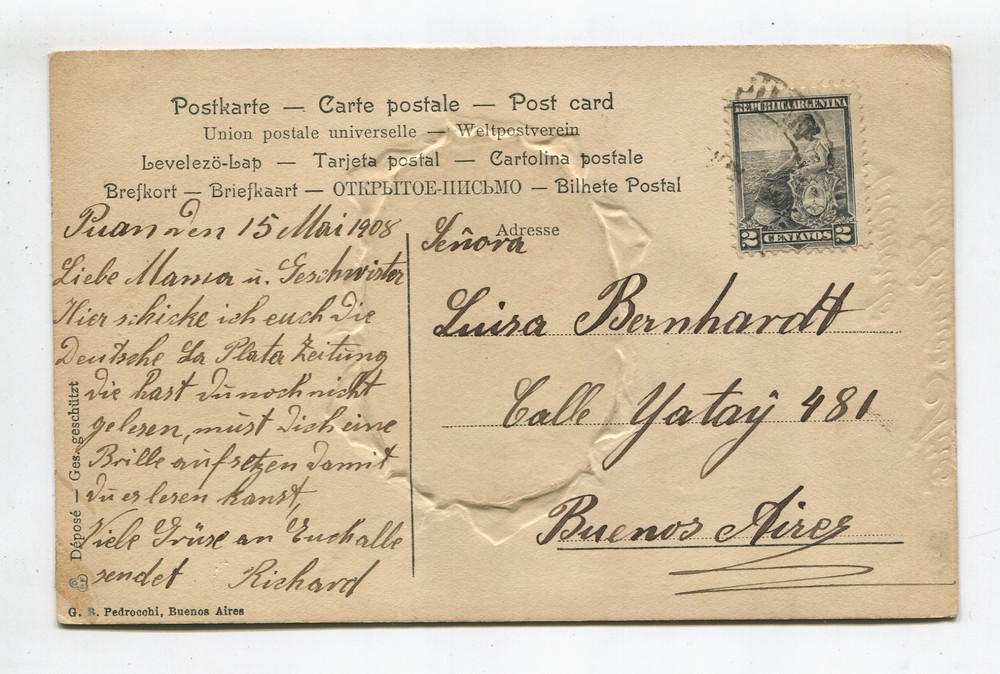 Postkarte — Carte postale — Post card
Union postale universelle — Weltpostverein
Levelezö-Lap — Tarjeta postal — Cartolina postale
Brefkort — Briefkaart — ОТКРЫТОЕ-ПИСЬМО — Bilhete Postal
REPUBLICA ARGENTINA
2 CENTAVOS 2
Puan den 15 Mai 1908
Liebe Mama u. Geschwister
Hier schicke ich euch die
Deutsche La Plata Zeitung
die hast du noch nicht
gelesen, must dich eine
Brille aufsetzen damit
du es lesen kanst,
Viele Grüse an Euch alle
sendet Richard
Adresse
Señora
Luisa Bernhardt
Calle Yataÿ 481
Buenos Aires
Déposé — Ges. geschützt
G. R. Pedrocchi, Buenos Aires